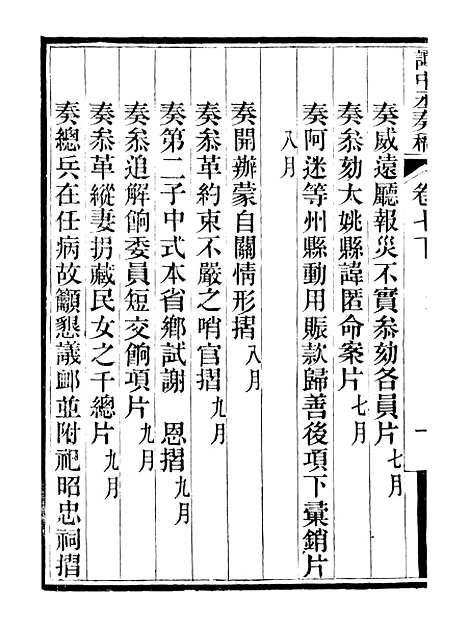 譚中丞奏稿 卷七下 一
奏威遠廳報災不實叅劾各員片七月
奏叅劾大姚縣諱匿命案片七月
奏阿迷等州縣動用賑款歸善後項下彙銷片
八月
奏開辦蒙自關情形摺八月
奏叅革約束不嚴之哨官摺九月
奏第二子中式本省鄉試謝 恩摺九月
奏叅追解餉委員短交餉項片九月
奏叅革縱妻拐藏民女之千總片九月
奏總兵在任病故籲懇議䘏並附祀昭忠祠摺